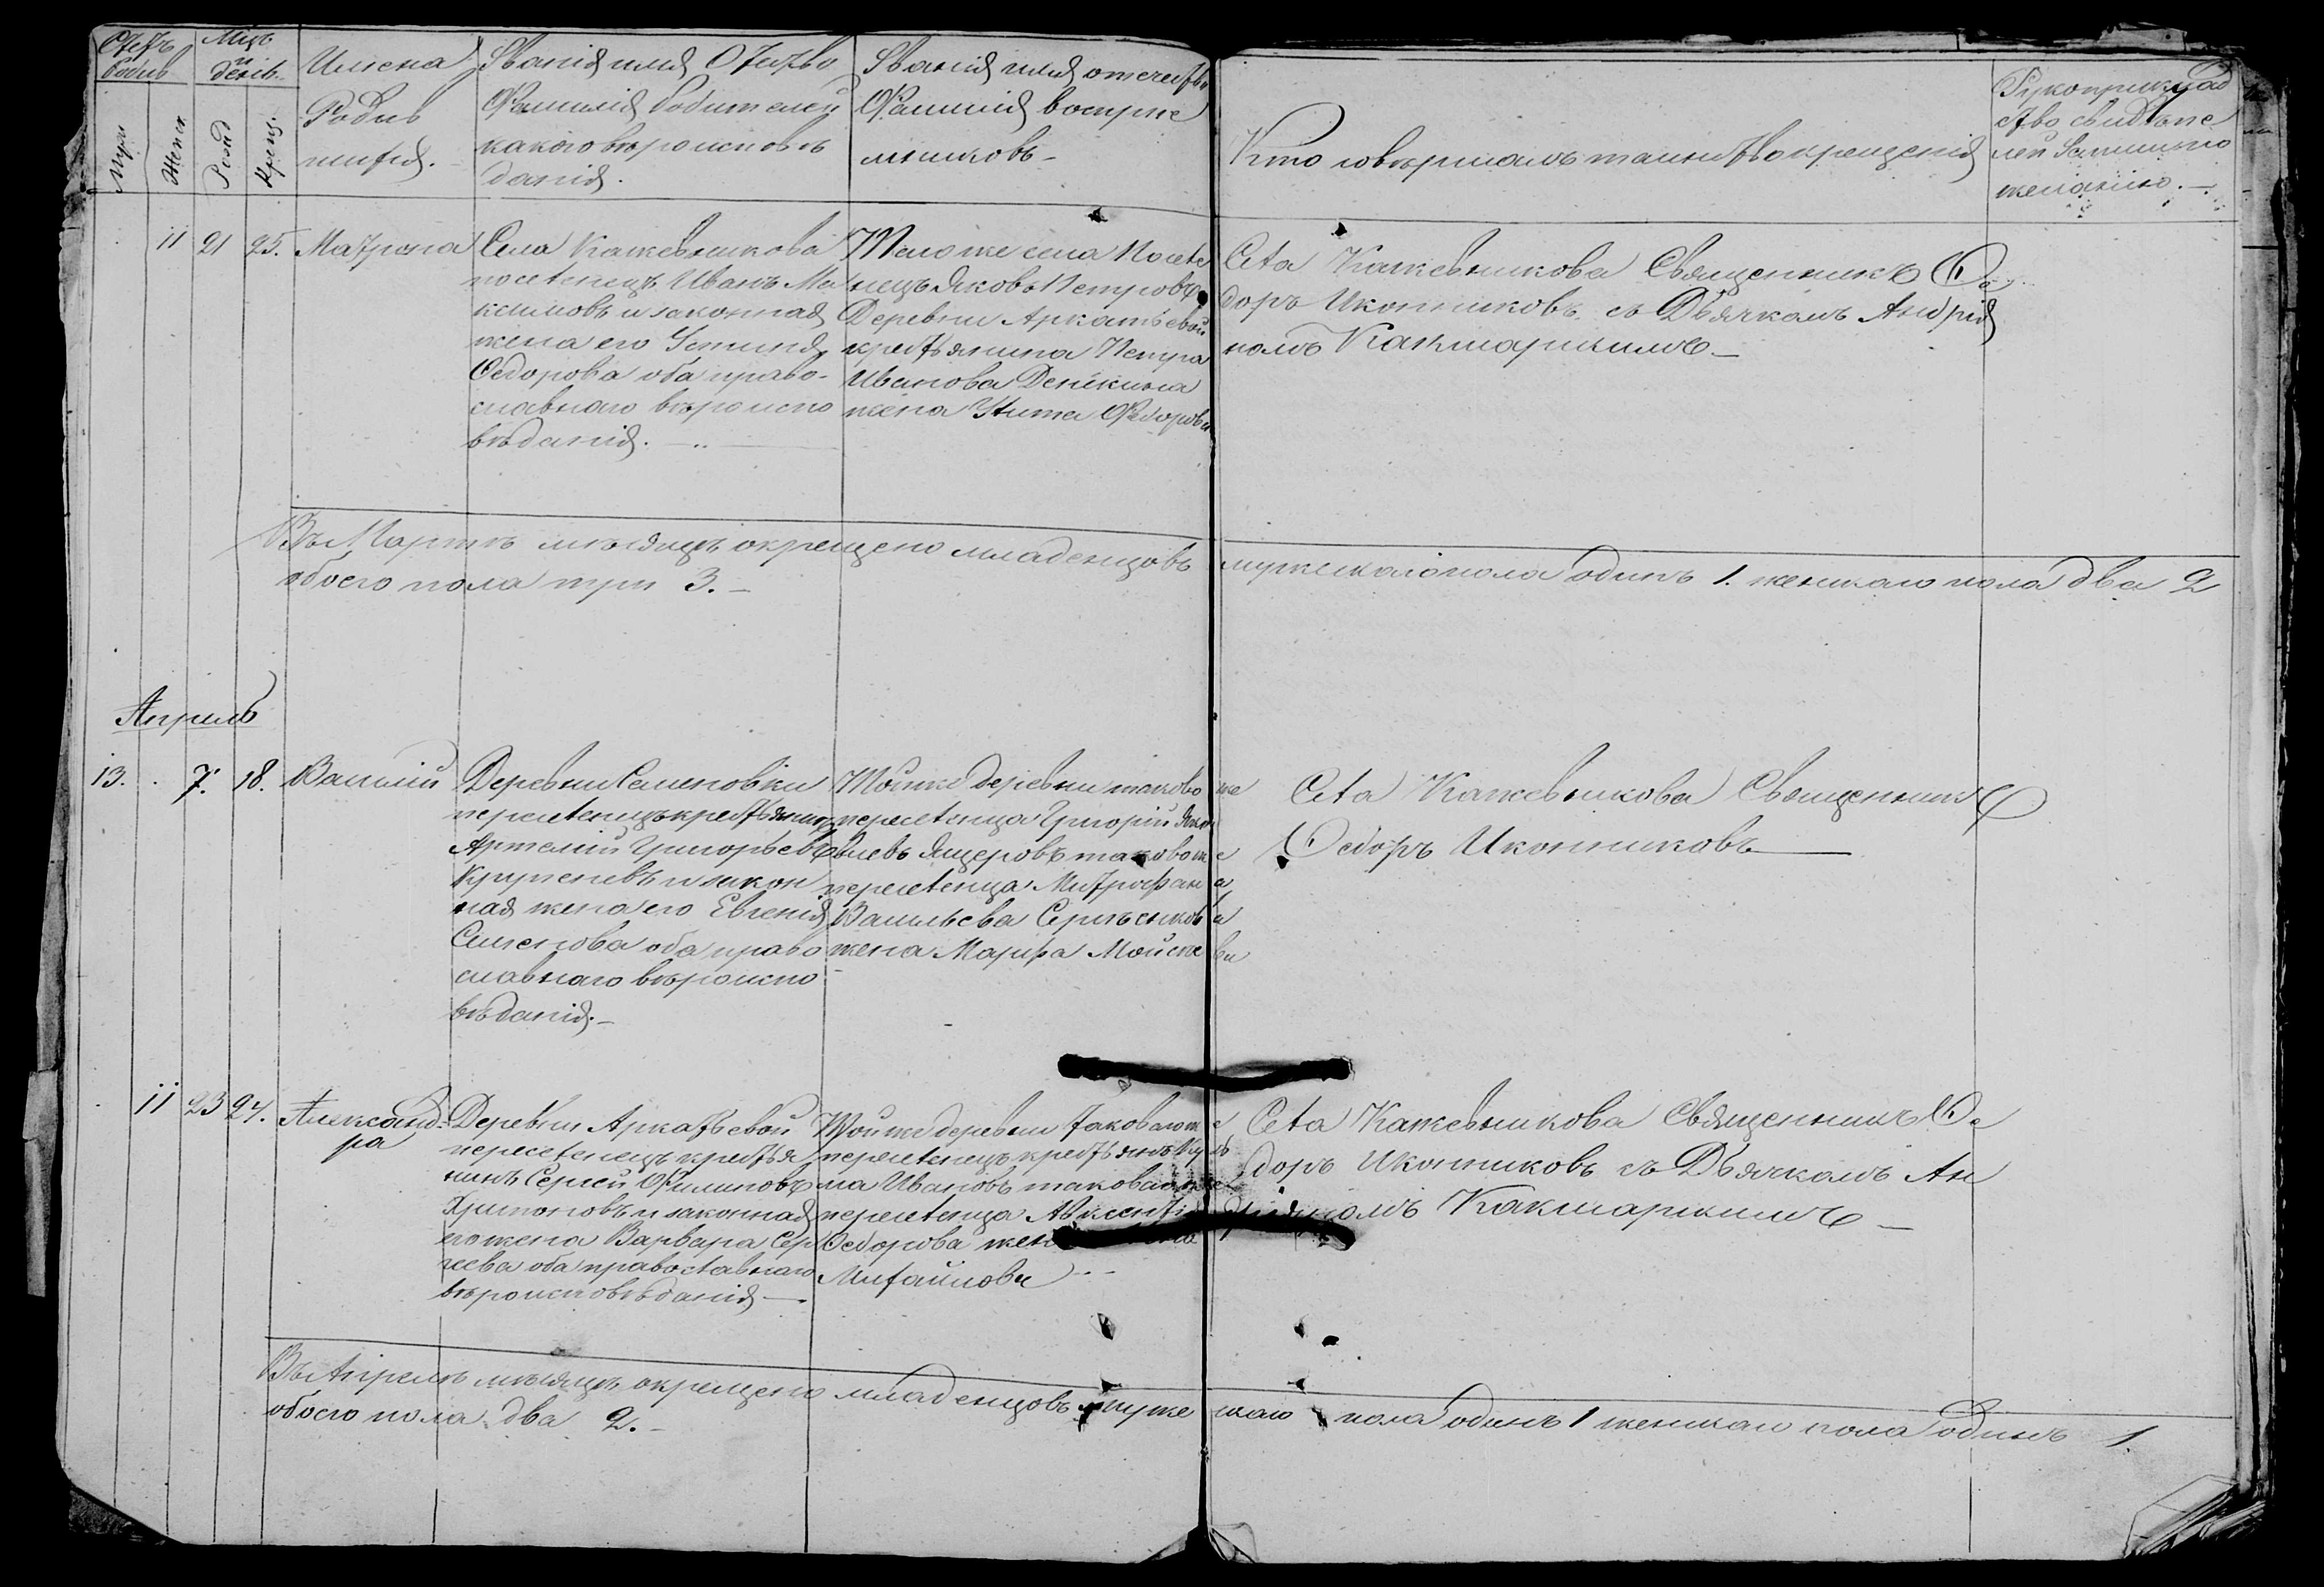 Мцъ
и
день
Имена
Родив
шихся.
Званія имя Отчество
Фамилія Родителей
какого вѣроисповѣ
данія.
Званія имя отчество
Фамилія воспріе
мниковъ
Кто совершалъ таинство крещенія
Рукоприклад
ство свидѣте
лей
желанію.
Муж
Женск
Рожд
Крещ.
11 21 25. Матрона
Села Кажевникова
поселенецъ Иванъ Ма
ксимовъ и законная
жена его Устинья
Федорова оба право-
славнаго вѣроиспо
вѣданія.
Того же села Поселе
нецъ Яковъ Петровъ
Деревни Аркатьевой
крестьянина Петра
Иванова
жена Федорова
Села Кажевникова Священникъ Фе
доръ Иконниковъ съ Дьячкомъ Андрія
номъ
Въ Мартѣ мѣсяцѣ окрещено младенцовъ мужескаго пола одинъ 1. женскаго пола два 2
обоего пола три 3.
Апрель
13. 7. 18. Василій
Деревни Семеновки
переселенецъ крестьянинъ
Григорьевъ
и закон
ная жена его Евгенія
Семенова оба право
славнаго вѣроиспо
вѣданія.
Той же деревни таково же
переселенца Григорій Яков
левъ Ящеровъ таковаго же
переселенца Митрофана
Васильева
жена Марфа Моисѣева
Села Кажевникова Священникъ
Федоръ Иконниковъ
11 23 24. Александ-
ра
Деревни Аркатьевой
переселенецъ крестья
нинъ Сергей Филиповъ
Хритоновъ и законная
его жена Варвара Сер
геева оба православнаго
вѣроисповѣданія
Той же деревни таковаго же
переселенецъ крестьянинъ Кузь
ма Ивановъ таковаго же
переселенца
Федорова жена
Михайлова
Села Кажевникова Священникъ Фе
доръ Иконниковъ съ Дьячкомъ Ан
дріяномъ
Въ Апрелѣ мѣсяцѣ окрещено младенцовъ мужескаго пола одинъ 1 женскаго пола одинъ 1.
обоего пола два 2.